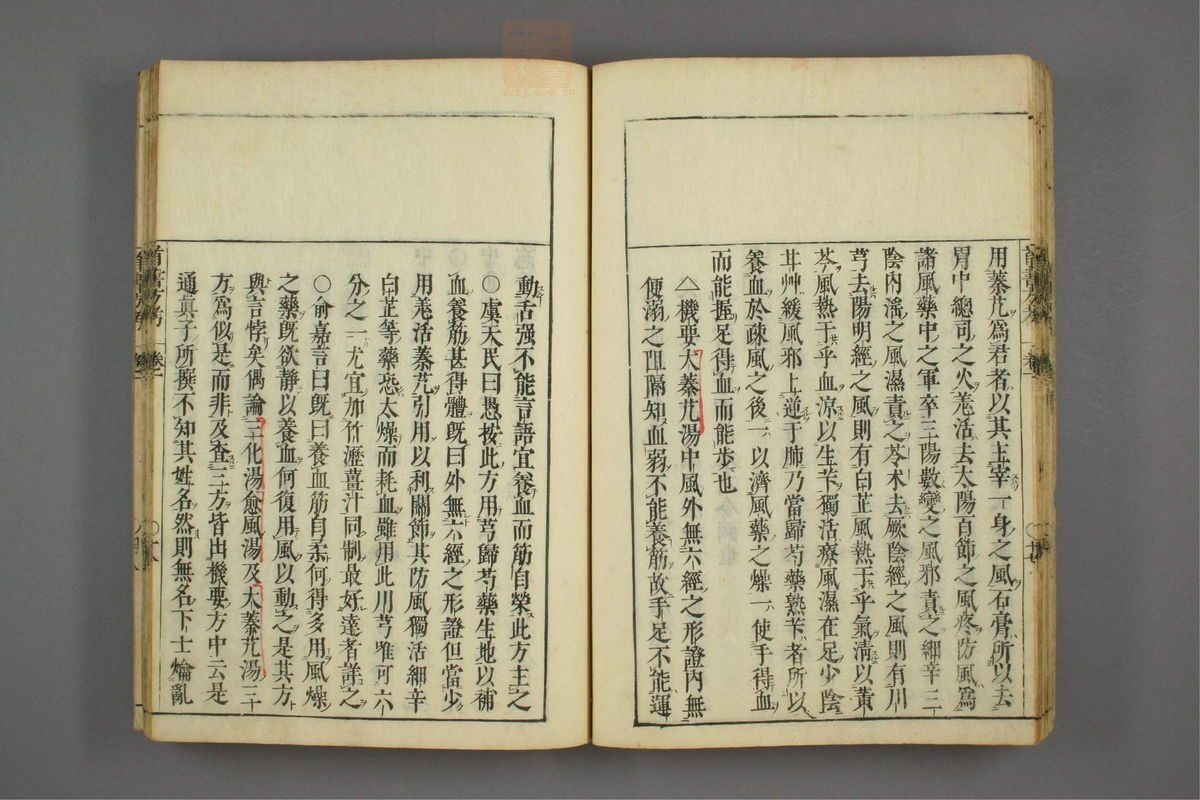 用蓁艽爲君者以其主宰一身之風石膏所以去
胃中總司之火羌活去太陽百節之風疼防風爲
諸風藥中之軍卒三陽數變之風邪責之細辛三
陰內滛之風濕責之苓朮去厥陰經之風則有川
芎去陽明經之風則有白芷風熱于乎氣清以黄
芩風熱于乎血涼以生芐獨活療風濕在足少陰
甘艸緩風邪上逆于肺乃當歸芍藥熟芐者所以
養血於疎風之後一以濟風藥之燥一使手得血
而能握足得血而能步也
△機要大蓁艽湯中風外無六經之形證內無
便溺之阻隔知血弱不能養筋故手足不能運
動舌强不能言語宜養血而筋自榮此方主之
○虞天民曰愚按此方用芎歸芍藥生地以補
血養筋甚得體旣曰外無六經之形證但當少
用羌活蓁艽引用以利關節其防風獨活細辛
白芷等藥恐太燥而耗血雖用此川芎唯可六
分之一尤宜加竹瀝薑汁同制最好達者詳之
○俞嘉言曰旣曰養血筋自柔何得多用風燥
之藥旣欲靜以養血何復用風以動之是其方
與言悖矣偶論三化湯愈風湯及大蓁艽湯三
方爲似是而非及查三方皆出機要方中云是
通眞子所撰不知其姓名然則無名下士煽亂